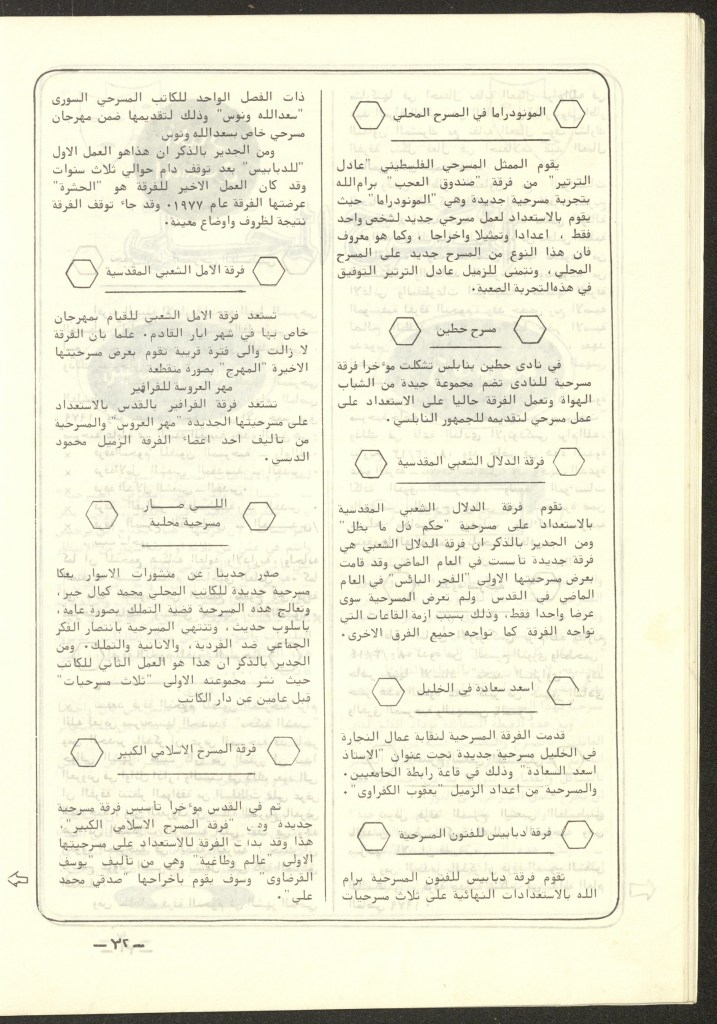 المونودراما في المسرح المحلي
يقوم الممثل المسرحي الفلسطيني "عادل
الترتير" من فرقة "صندوق العجب" برام الله
بتجربة مسرحية جديدة وهي "المونودراما" حيث
يقوم بالاستعداد لعمل مسرحي جديد لشخص واحد
فقط ، اعدادا وتمثيلا واخراجا ، وكما هو معروف
فان هذا النوع من المسرح جديد على المسرح
المحلي، ونتمنى للزميل عادل الترتير التوفيق
في هذه التجربة الصعبة.
مسرح حطين
في نادى حطين بنابلس تشكلت موءخرا فرقة
مسرحية للنادى تضم مجموعة جيدة من الشباب
الهواة وتعمل الفرقة حاليا على الاستعداد على
عمل مسرحي لتقديمه للجمهور النابلسي.
فرقة الدلال الشعبي المقدسية
تقوم فرقة الدلال الشعبي المقدسية
بالاستعداد على مسرحية "حكم ذل ما يظل"
ومن الجدير بالذكر ان فرقة الدلال الشعبي هي
فرقة جديدة تأسست في العام الماضي وقد قامت
بعرض مسرحيتها الاولى "الفجر اليائس" في العام
الماضي في القدس ولم تعرض المسرحية سوى
عرضا واحدا فقط، وذلك بسبب ازمة القاعات التي
تواجه الفرقة كما تواجه جميع الفرق الاخرى.
اسعد سعادة في الخليل
قدمت الفرقة المسرحية لنقابة عمال النجارة
في الخليل مسرحية جديدة تحت عنوان "الاستاذ
اسعد السعادة" وذلك في قاعة رابطة الجامعيين.
والمسرحية من اعداد الزميل "يعقوب الكفراوى".
فرقة دبابيس للفنون المسرحية
تقوم فرقة دبابيس للفنون المسرحية برام
الله بالاستعدادات النهائية على ثلاث مسرحيات
ذات الفصل الواحد للكاتب المسرحي السورى
"سعدالله ونوس" وذلك لتقديمها ضمن مهرجان
مسرحي خاص بسعدالله ونوس.
ومن الجدير بالذكر ان هذاهو العمل الاول
"للدبابيس" بعد توقف دام حوالي ثلاث سنوات
وقد كان العمل الاخير للفرقة هو "الحشرة"
عرضتها الفرقة عام ١٩٧٧. وقد جاء توقف الفرقة
نتيجة لظروف واوضاع معينة.
فرقة الامل الشعبي المقدسية
تستعد فرقة الامل الشعبي للقيام بمهرجان
خاص بها في شهر ايار القادم. علما بان الفرقة
لا زالت والى فترة قريبة تقوم بعرض مسرحيتها
الاخيرة "المهرج" بصورة متقطعة
مهر العروسة للفرافير
تشتعد فرقة الفرافير بالقدس بالاستعداد
على مسرحيتها الجديدة "مهر العروس" والمسرحية
من تأليف احد اعضاء الفرقة الزميل محمود
الدبسي.
اللــي صـــار
مسرحية محلية
صدر حديثا عن منشورات الاسوار بعكا
مسرحية جديدة للكاتب المحلي محمد كمال جبر،
وتعالج هذه المسرحية قضية التملك بصورة عامة،
باسلوب حديث، وتنتهي المسرحية بانتصار الفكر
الجماعي ضد الفردية، والانانية والتملك. ومن
الجدير بالذكر ان هذا هو العمل الثاني للكاتب
حيث نشر مجموعته الاولى "ثلاث مسرحيات"
قبل عامين عن دار الكاتب
فرقة المسرح الاسلامي الكبير
تم في القدس موءخرا تأسيس فرقة مسرحية
جديدة "فرقة المسرح الاسلامي الكبير".
هذا وقد بدات الفرقة للاستعداد على مسرحيتها
الاولى "عالم وطاغية" وهي من تأليف "يوسف
القرضاوى" وسوف يقوم باخراجها "صدقي محمد
علي".
— ٣٢ —